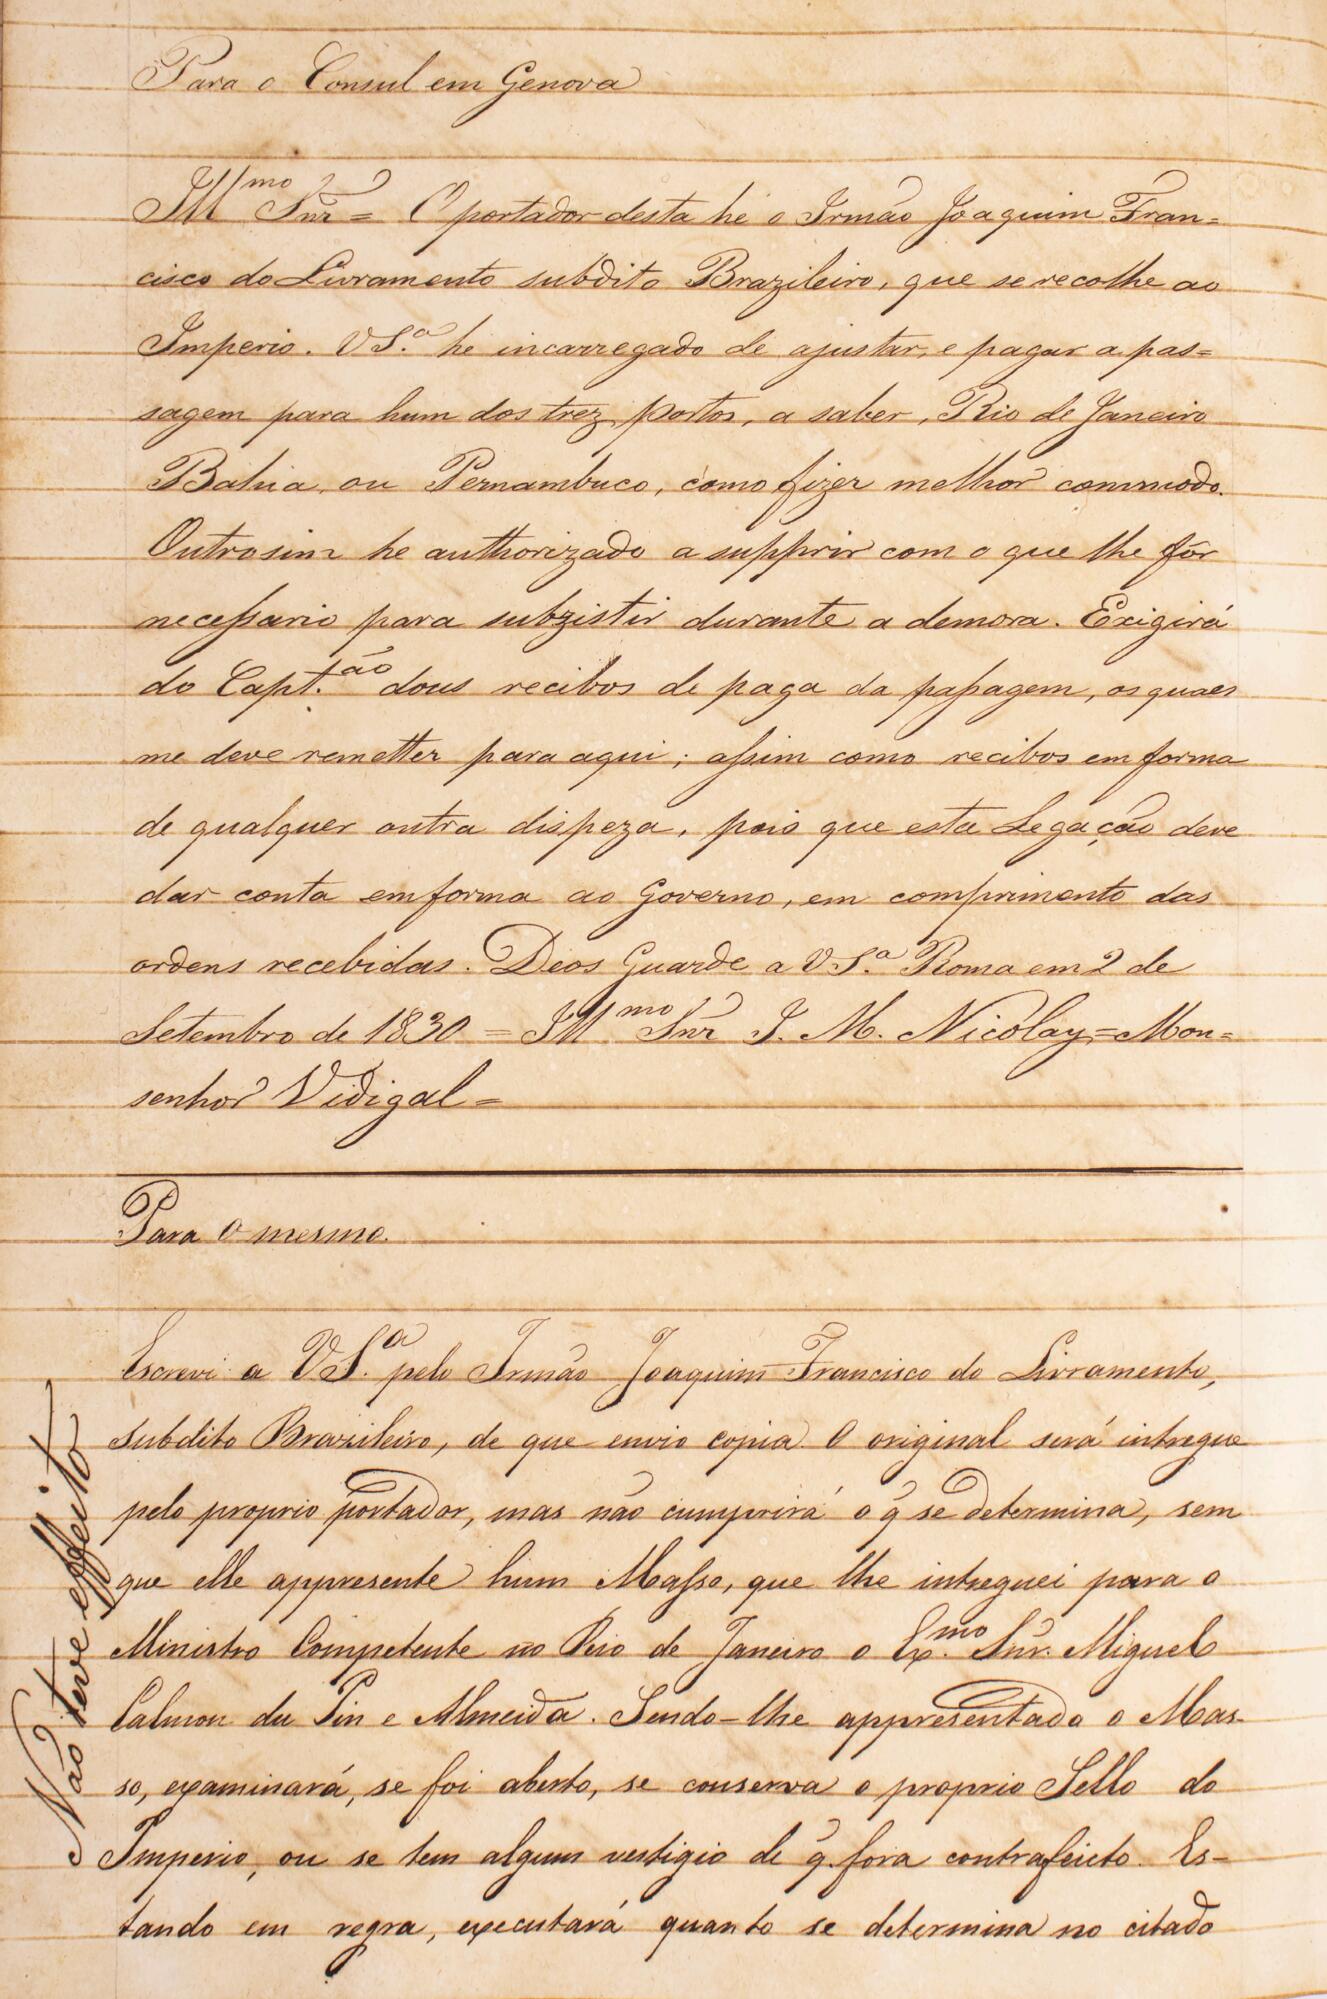 Para o Consul em Genova
Ill^mo Snr = O portador desta he o Irmão Joaquim Fran=
cisco do Livramento subdito Brazileiro, que se recolhe ao
Imperio. VS.ª he incarregado de ajustar, e pagar a pas=
sagem para hum dos trez portos, a saber, Rio de Janeiro
Bahia, ou Pernambuco, como fizer melhor commodo.
Outrosim he authorizado a supprir com o que lhe fôr
necessario para subzistir durante a demora. Exigirá
do Capt.^ão dous recibos de paga da passagem, os quaes
me deve remetter para aqui; assim como recibos em forma
de qualquer outra dispeza, pois que esta Legação deve
dar conta em forma ao Governo, em comprimento das
ordens recebidas. Deos Guarde a VS.ª Roma em 2 de
Setembro de 1830 = Ill^mo Snr J. M. Nicolay = Mon=
senhor Vidigal =
Para o mesmo.
Escrevi a VS.ª pelo Irmão Joaquim Francisco do Livramento,
subdito Brazileiro, de que envio copia. O original será intregue
pelo proprio portador, mas não cumprirá o q̃ se determina, sem
que elle appresente hum Masso, que lhe intreguei para o
Ministro Competente no Rio de Janeiro o Ex.^mo Snr. Miguel
Calmon du Pin e Almeida. Sendo-lhe appresentado o Mas-
so, examinará, se foi aberto, se conserva o proprio Sello do
Imperio, ou se tem algum vestigio de q̃. fora contrafeicto. Es-
tando em regra, executará quanto se determina no citado
Não teve effeito